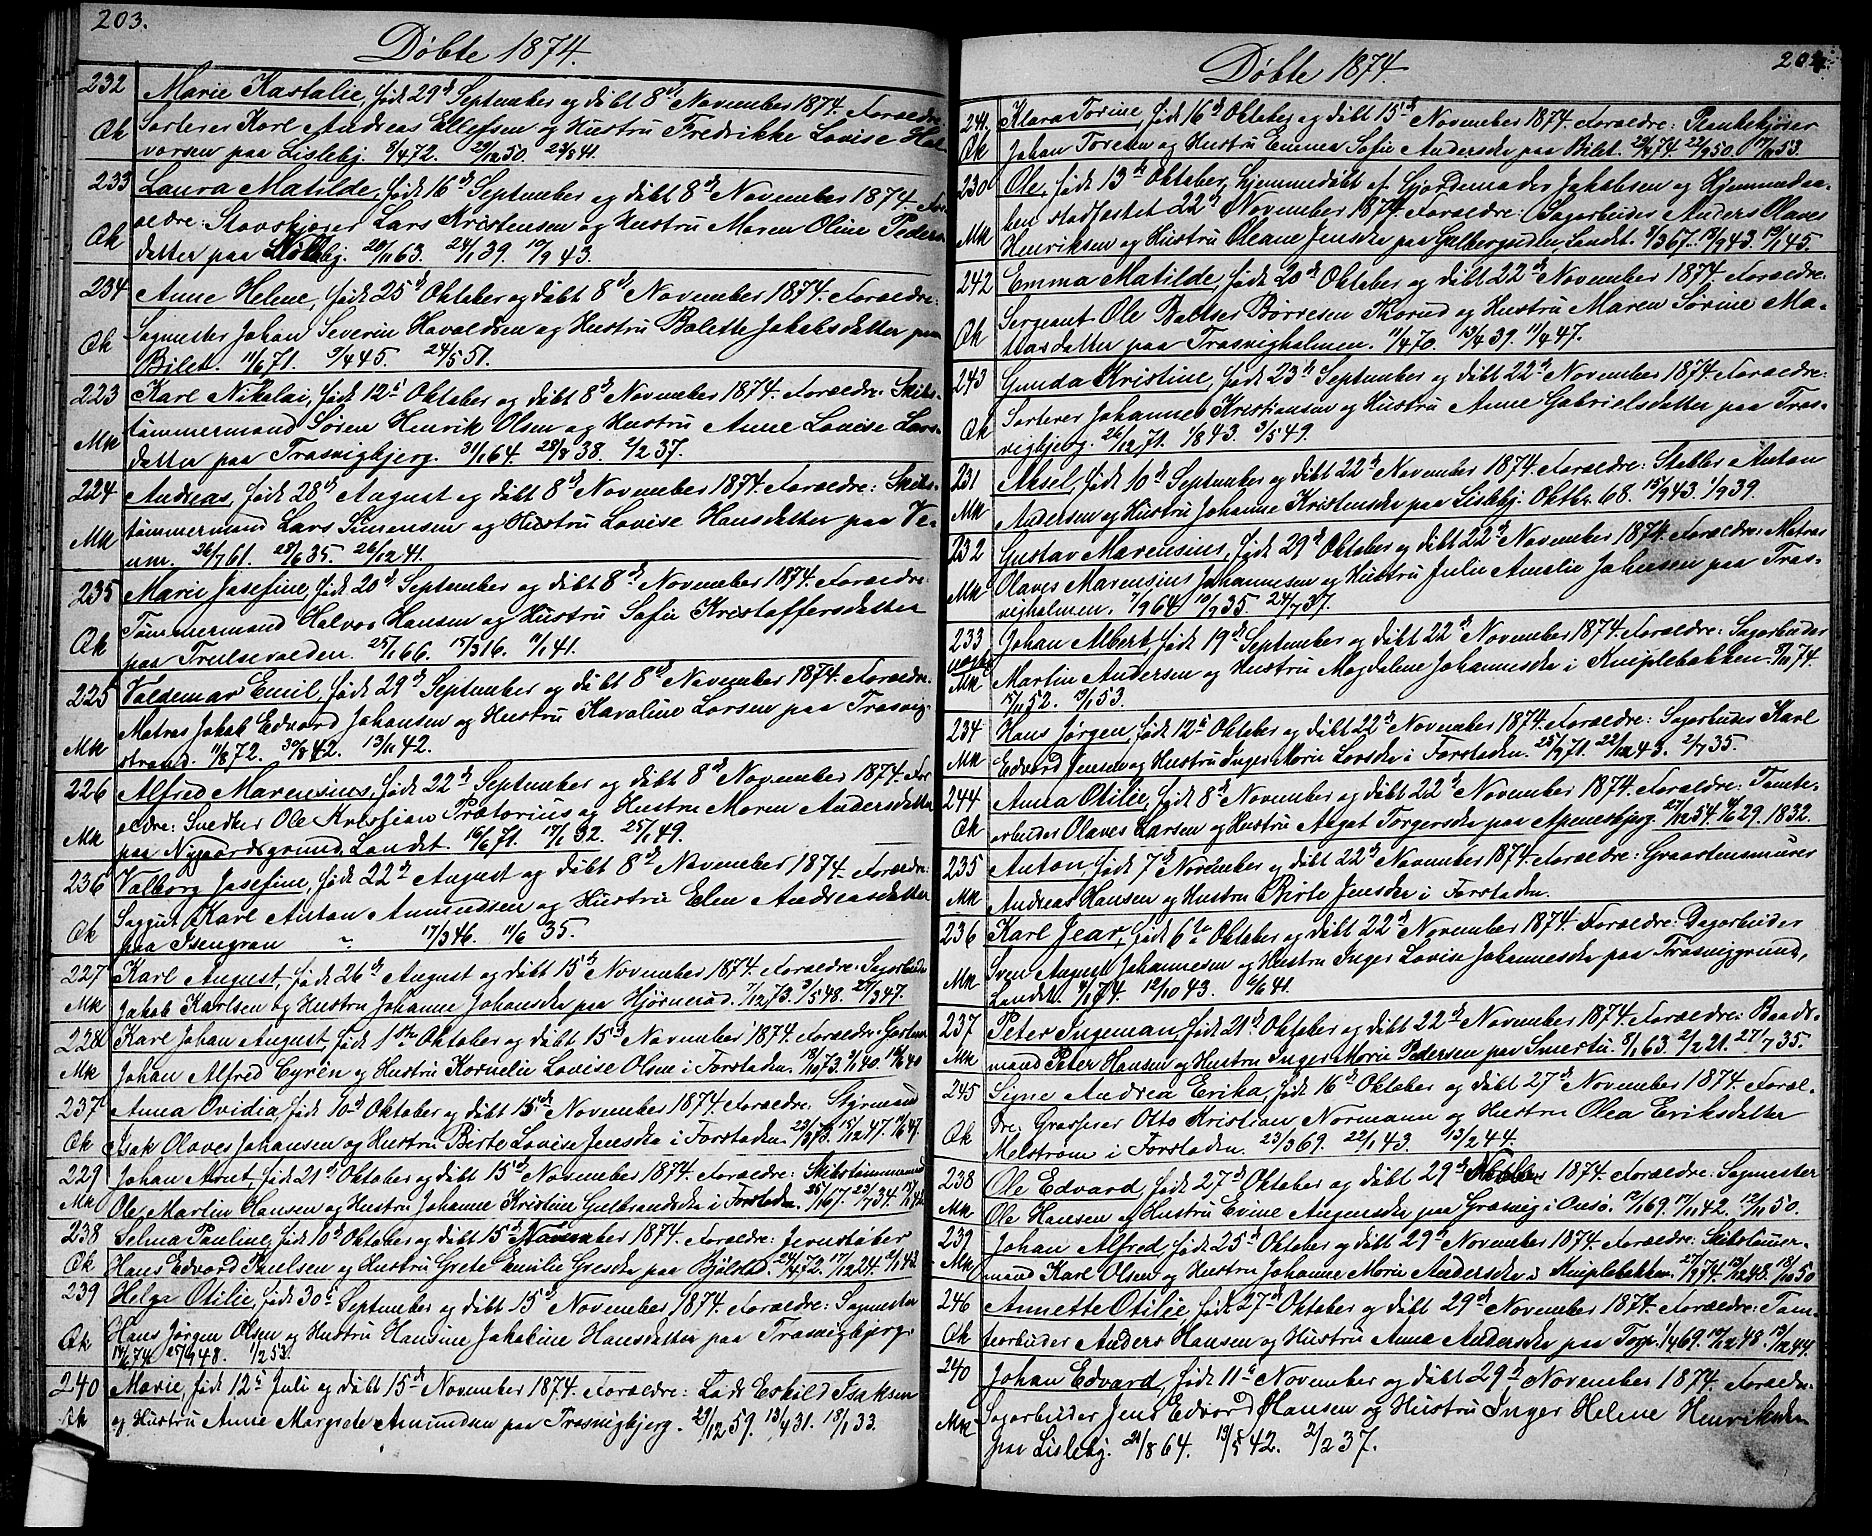 203.
Döbte 1874.
232 Marie Kastalie, födt 29de September og döbt 8de November 1874. Foreldre:
Qk Sorterer Karl Andreas Ellefsen og Hustru Fredrikke Lovise Hal-
vorsen paa Lisleby. 8/4 72. 29/12 50. 23/8 41.
233 Laura Matilde, födt 16de September og döbt 8de November 1874. For-
Qk ældre: Lars Kristensen og Hustru Maren Oline Peders-
datter paa 24/1 39. 10/9 43.
234 Anne Helene, födt 25de Oktober og döbt 8de November 1874. Foreldre:
Qk Sagmester Johan Severin Havaldsen og Hustru Bolette Jakobsdatter paa
Bilet. 11/6 71. 9/4 45. 24/5 51.
223 Karl Nikolai, födt 12te Oktober og döbt 8de November 1874. Foreldre: Skibs-
Mk tömmermand Sören Henrik Olsen og Hustru Anne Lovise Lars-
datter paa Trosvigbjerg. 31/1 64. 28/8 38. 2/2 37.
224 Andreas, födt 28de August og döbt 8de November 1874. Foreldre: Skibs-
Mk tömmermand Lars Simensen og Hustru Lovise Hansdatter paa Ve-
um. 26/7 61. 28/6 35. 26/12 41.
235 Marie Josefine, födt 20de September og döbt 8de November 1874. Foreldre:
Qk Tömmermand Halvor Hansen og Hustru Sofie Kristoffersdatter
paa Trulsevolden. 25/1 66. 17/3 16. 11/1 41.
225 Valdemar Emil, födt 29de September og döbt 8de November 1874. Foreldre:
Mk Matros Jakob Edvard Johansen og Hustru Karoline Larsen paa Trosvig-
strand. 11/8 72. 30/8 42. 13/1 42.
226 Alfred Marensius, födt 22de September og döbt 8de November 1874. For-
ældre: Snedker Ole Kristian Prætorius og Hustru Maren Andersdatter
Mk paa Nygaardsgrund, Landet. 16/6 71. 17/1 32. 25/1 49.
236 Valborg Josefine, födt 22de August og döbt 8de November 1874. Foreldre:
Qk Saggut Karl Anton Amundsen og Hustru Elen Andreasdatter
paa Isengran 17/3 46. 11/6 35.
227 Karl August, födt 26de August og döbt 15de November 1874. Foreldre: Sagarbeider
Mk Jakob Karlsen og Hustru Johanne Johansdtr paa Hjörneröd. 7/12 73. 3/5 48. 27/3 47.
228 Karl Johan August, födt 1ste Oktober og döbt 15de November 1874. Foreldre: Gartner
Mk Johan Alfred Cyrén og Hustru Kornelie Lovise Olsen i Forstaden.
237 Anna Ovidia, födt 10de Oktober og döbt 15de November 1874. Foreldre: Styrmand
Qk Isak Olaves Johansen og Hustru Birte Lovise Jensdtr i Forstaden.
229 Johan Arnt, födt 21de Oktober og döbt 15de November 1874. Foreldre: Skibstömmermand
Mk Ole Martin Hansen og Hustru Johanne Kristine Gulbrandsdtr i Forstaden.
238 Selma Pauline, födt 10de Oktober og döbt 15de November 1874. Foreldre: Jernstöber
Qk Hans Edvard Paulsen og Hustru Grete Emilie Gresdtr paa Bjölstad.
239 Helga Otilie, födt 30te September og döbt 15de November 1874. Foreldre: Sagmester
Qk Hans Jörgen Olsen og Hustru Hansine Jakobine Hansdatter paa Trosvigbjerg.
15/9 48. 1/2 53.
240 Marie, födt 12te Juli og döbt 15de November 1874. Foreldre: Lods Eskild Isaksen
Qk og Hustru Anne Margrete Amundsen paa Trosvigbjerg. 29/12 59. 13/4 31. 18/1 33.
204.
Döbte 1874.
241. Klara Torine, födt 16de Oktober og döbt 15de November 1874. Foreldre: Plankekjörer
Qk Johan Toresen og Hustru Emma Sofie Andersdtr paa Bilet.
230 Ole, födt 13de Oktober, hjemmedöbt af Gjordemoder Jakobsen og Hjemmedaa-
ben stadfæstet 22de November 1874. Foreldre: Sagarbeider Anders Olaves
Mk Henriksen og Hustru Oleane Jensdtr paa Landet. 8/3 67. 18/9 43. 19/1 45.
242 Emma Matilde, födt 20de Oktober og döbt 22de November 1874. Foreldre:
Qk Sergeant Ole Baltser Börresen Thorud og Hustru Maren Sörine Ma-
tiasdatter paa Trosvigholmen. 11/4 70. 13/4 39. 11/8 47.
243 Gunda Kristine, födt 23de September og döbt 22de November 1874. Foreldre:
Qk Sorterer Johannes Kristiansen og Hustru Anne Gabrielsdatter paa Tros-
vigbjerg. 26/12 71. 1/8 43. 3/5 49.
231 Aksel, födt 10de September og döbt 22de November 1874. Foreldre: Stabler Anton
Mk Andersen og Hustru Johanne Kristensdtr paa Lisleby. Oktbr. 68. 15/9 43. 1/9 39.
232 Gustav Marensius, födt 29de Oktober og döbt 22de November 1874. Foreldre: Matros
Mk Olaves Marensius Johannesen og Hustru Julie Amalie Johnsen paa Tros-
vigholmen. 7/9 64. 19/7 35. 24/7 37.
233 Johan Albert, födt 19de September og döbt 22de November 1874. Foreldre: Sagarbeider
uægte Mk Martin Andersen og Hustru Magdalene Johannesdtr i Kniplebakken.
15/11 52. 9/1 53.
234 Hans Jörgen, födt 12te Oktober og döbt 22de November 1874. Foreldre: Sagarbeider Karl
Mk Edvard Jensen og Hustru Inger Marie Larsdtr i Forstaden. 25/9 71. 22/12 43. 2/7 35.
244 Anna Otilie, födt 8de November og döbt 22de November 1874. Foreldre: Tomte-
Qk arbeider Olaves Larsen og Hustru Aagot Torgersdtr paa Apenesbjerg. 27/12 54. 4/6 29. 1832.
235 Anton, födt 7de November og döbt 22de November 1874. Foreldre: Graastensmurer
Mk Andreas Hansen og Hustru Birte Jensdtr i Forstaden.
236 Karl Jear, födt 6te Oktober og döbt 22de November 1874. Foreldre: Dagarbeider
Mk Sven August Johannesen og Hustru Inger Lovise Johannesdtr paa Trosviggrund,
Landet. 12/10 43. 6/6 41.
237 Peter Ingeman, födt 21de Oktober og döbt 22de November 1874. Foreldre: Baads-
Mk mand Peter Hansen og Hustru Inger Marie Pedersen paa Smertu. 8/1 63. 2/2 21. 27/7 35.
245 Signe Andrea Erika, födt 16de Oktober og döbt 27de November 1874. Foræl-
dre: Otto Kristian Normann og Hustru Olea Eriksdatter
Qk Melström i Forstaden. 23/3 69. 22/1 43. 13/2 44.
238 Ole Edvard, födt 27de Oktober og döbt 29de November 1874. Foreldre: Sagmester
Mk Ole Hansen og Hustru Evine Augensdtr paa Græsvig i Onsö. 12/1 69. 17/1 42. 12/11 50.
239 Johan Alfred, födt 25de Oktober og döbt 29de November 1874. Foreldre: Skibstömer-
Mk mand Karl Olsen og Hustru Johanne Marie Andersdtr i Kniplebakken.
246 Annette Otilie, födt 27de Oktober og döbt 29de November 1874. Foreldre: Tom-
Qk tearbeider Anders Hansen og Hustru Anne Andersdtr paa Torp. 1/4 69. 19/12 48. 19/12 44.
240 Johan Edvard, födt 11te November og döbt 29de November 1874. Foreldre:
Mk Sagarbeider Jens Edvard Hansen og Hustru Inger Helene Henriksdtr
paa Lisleby. 21/8 64. 19/5 42. 2/2 37.